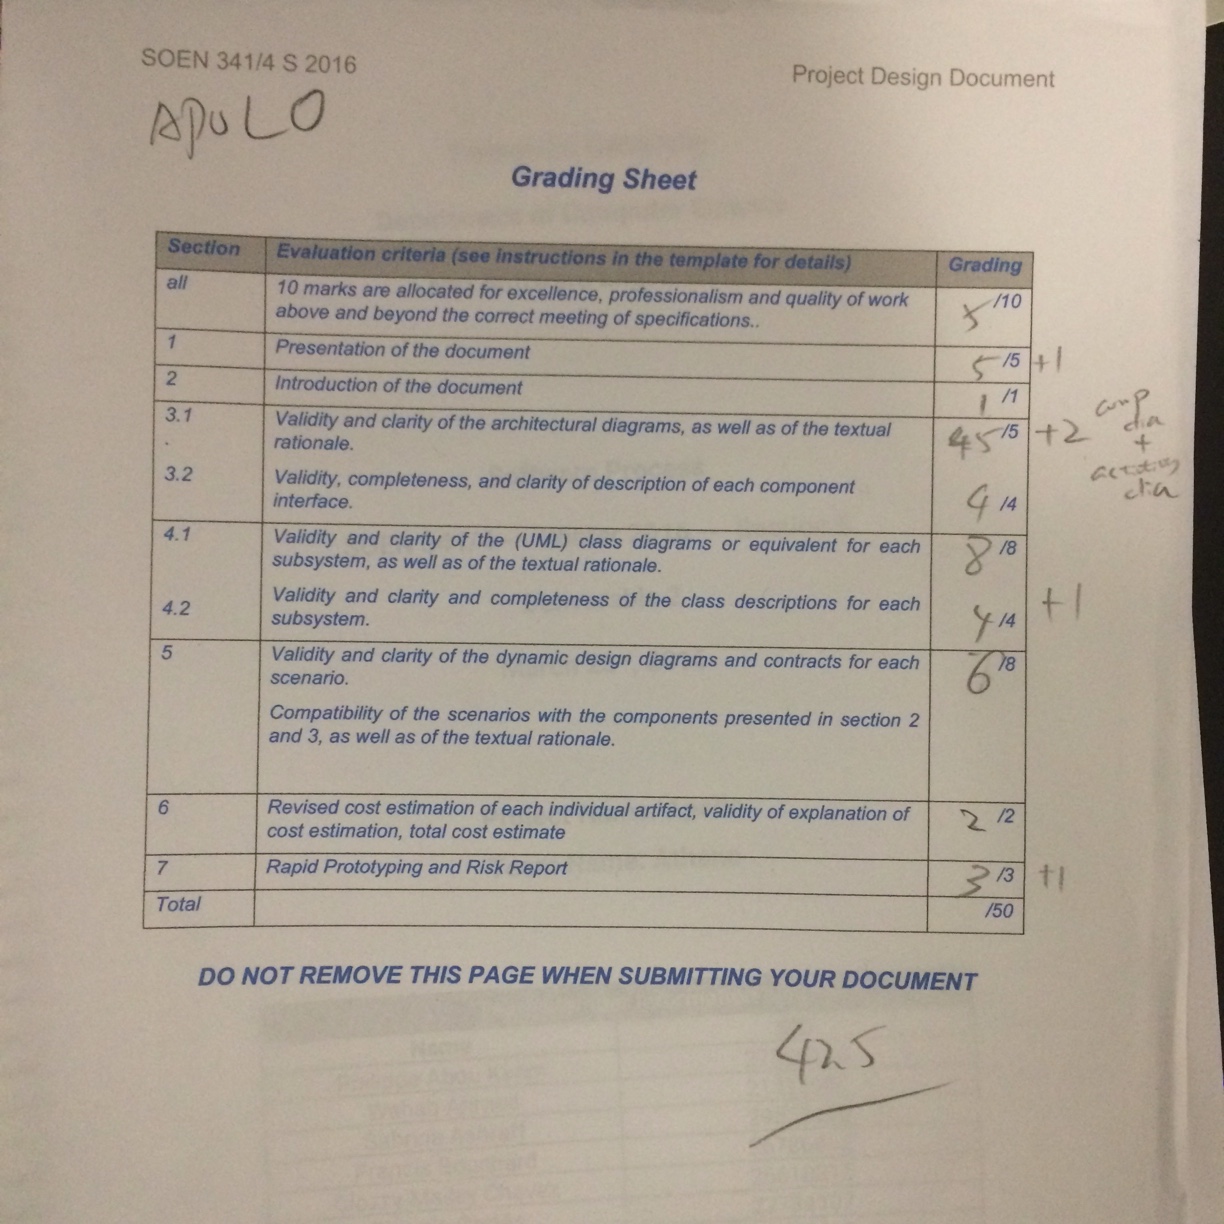 SOEN 341/4 S 2016
Project Design Document
APOLO
Grading Sheet
Section Evaluation criteria (see instructions in the template for details) Grading
all 10 marks are allocated for excellence, professionalism and quality of work 5 /10
above and beyond the correct meeting of specifications..
1 Presentation of the document 5 /5 +1
2 Introduction of the document 1 /1
3.1 Validity and clarity of the architectural diagrams, as well as of the textual 45 /5 +2 comp
rationale. dia
+
activity
dia
3.2 Validity, completeness, and clarity of description of each component
interface. 4 /4
4.1 Validity and clarity of the (UML) class diagrams or equivalent for each 8 /8
subsystem, as well as of the textual rationale.
4.2 Validity and clarity and completeness of the class descriptions for each +1
subsystem. 4 /4
5 Validity and clarity of the dynamic design diagrams and contracts for each 6 /8
scenario.
Compatibility of the scenarios with the components presented in section 2
and 3, as well as of the textual rationale.
6 Revised cost estimation of each individual artifact, validity of explanation of 2 /2
cost estimation, total cost estimate
7 Rapid Prototyping and Risk Report 3 /3 +1
Total /50
DO NOT REMOVE THIS PAGE WHEN SUBMITTING YOUR DOCUMENT
42.5